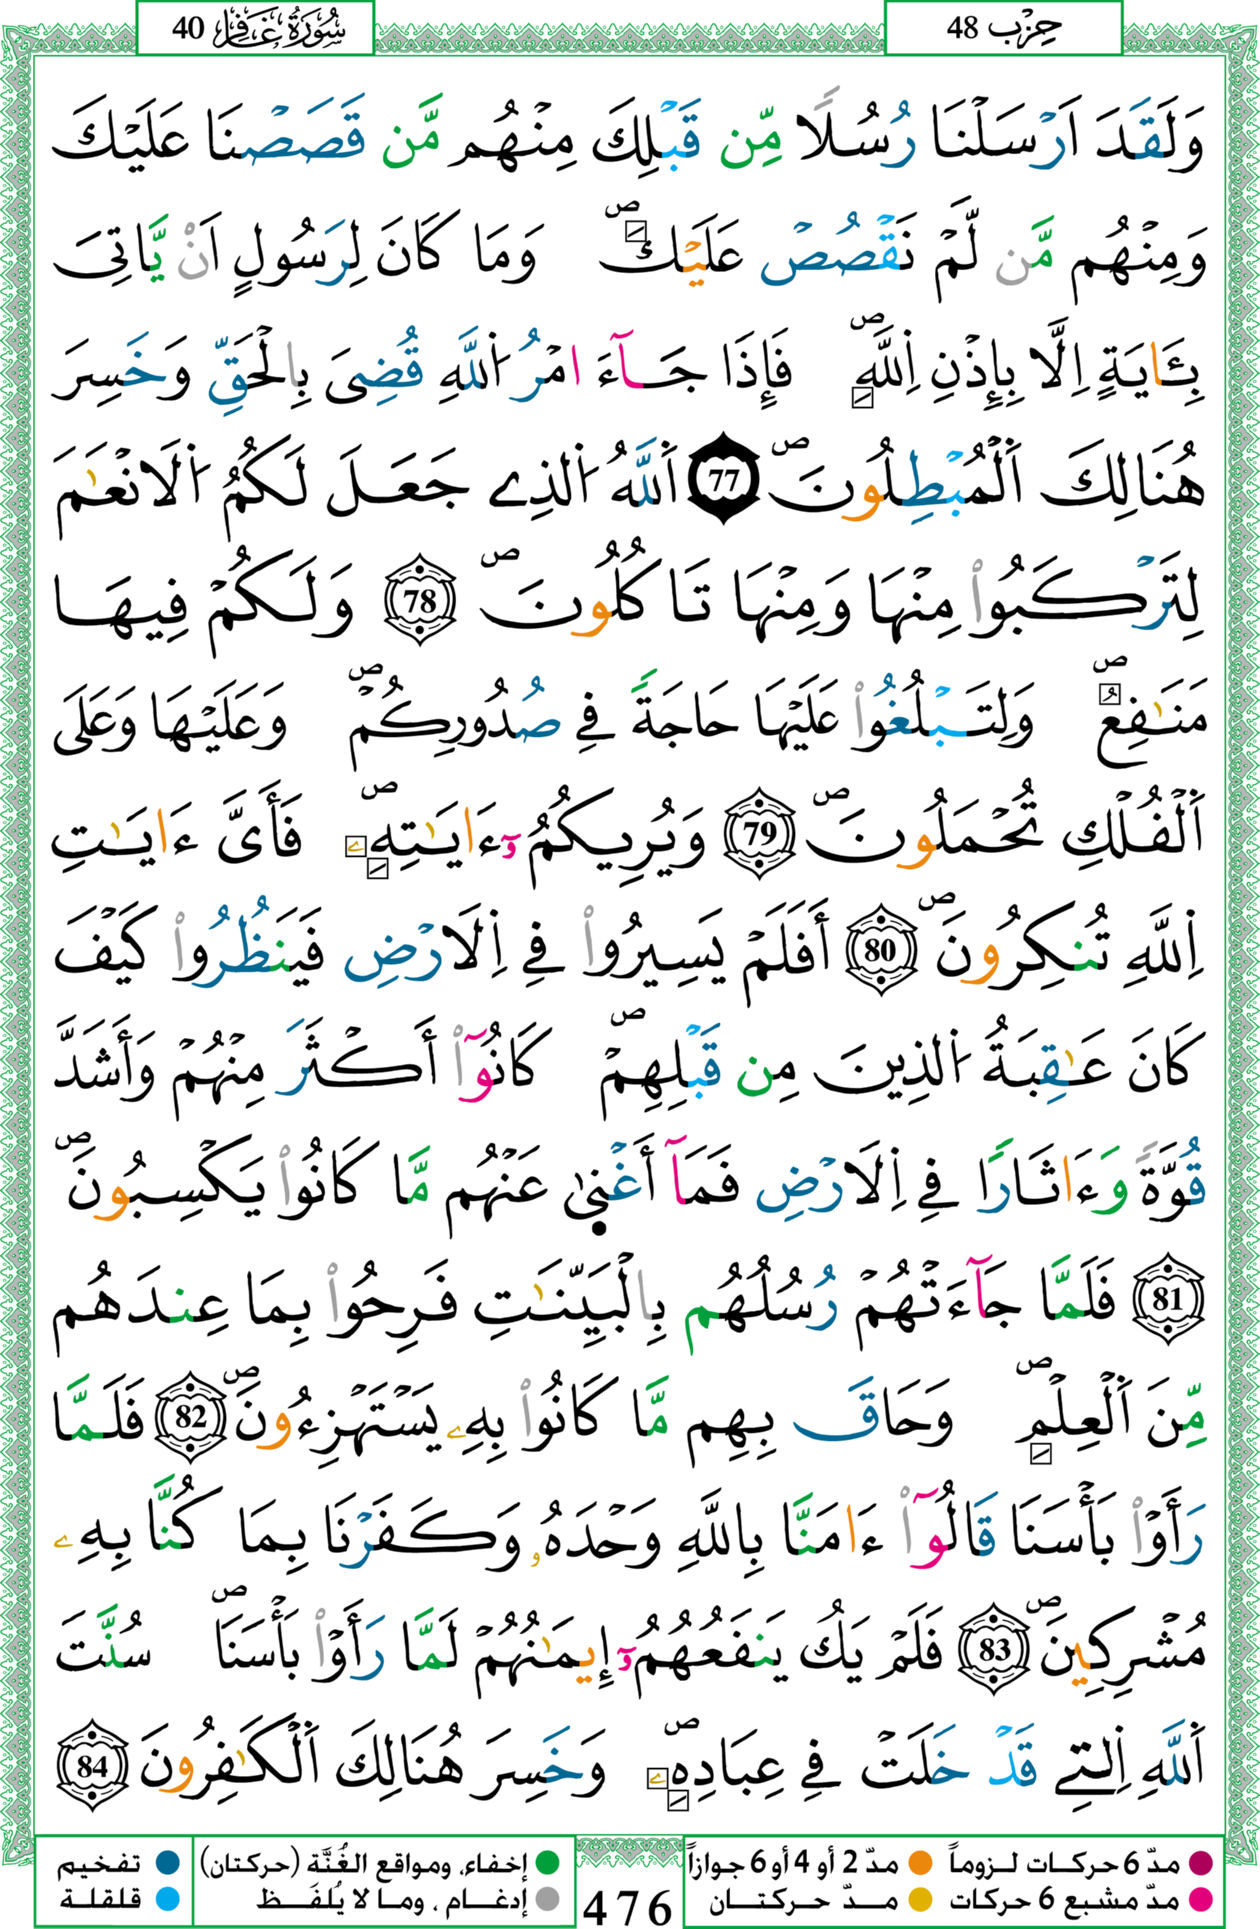 حِزْب 48
سُورَةُ غَافِر 40
وَلَقَدَ اَرْسَلْنَا رُسُلًا مِّن قَبْلِكَ مِنْهُم مَّن قَصَصْنَا عَلَيْكَ
وَمِنْهُم مَّن لَّمْ نَقْصُصْ عَلَيْكَ ص وَمَا كَانَ لِرَسُولٍ اَنْ يَّاتِىَ
بِـَٔايَةٍ اِلَّا بِإِذْنِ اِ۬للَّهِ ص فَإِذَا جَآءَ امْرُ اُ۬للَّهِ قُضِىَ بِالْحَقِّ وَخَسِرَ
هُنَالِكَ اَ۬لْمُبْطِلُونَ ص 77 اَ۬للَّهُ اُ۬لذِے جَعَلَ لَكُمُ اُ۬لَانْعَٰمَ
لِتَرْكَبُواْ مِنْهَا وَمِنْهَا تَاكُلُونَ ص 78 وَلَكُمْ فِيهَا
مَنَٰفِعُ ص وَلِتَبْلُغُواْ عَلَيْهَا حَاجَةً فِے صُدُورِكُمْ ص وَعَلَيْهَا وَعَلَى
اَ۬لْفُلْكِ تُحْمَلُونَ ص 79 وَيُرِيكُمُۥٓ ءَايَٰتِهِۦ ص فَأَىَّ ءَايَٰتِ
اِ۬للَّهِ تُنكِرُونَ ص 80 أَفَلَمْ يَسِيرُواْ فِے اِ۬لَارْضِ فَيَنظُرُواْ كَيْفَ
كَانَ عَٰقِبَةُ اُ۬لذِينَ مِن قَبْلِهِمْ ص كَانُوٓاْ أَكْثَرَ مِنْهُمْ وَأَشَدَّ
قُوَّةً وَءَاثَارًا فِے اِ۬لَارْضِ فَمَآ أَغْنٜىٰ عَنْهُم مَّا كَانُواْ يَكْسِبُونَ ص
81 فَلَمَّا جَآءَتْهُمْ رُسُلُهُم بِالْبَيِّنَٰتِ فَرِحُواْ بِمَا عِندَهُم
مِّنَ اَ۬لْعِلْمِ ص وَحَاقَ بِهِم مَّا كَانُواْ بِهِۦ يَسْتَهْزِءُونَ ص 82 فَلَمَّا
رَأَوْاْ بَأْسَنَا قَالُوٓاْ ءَامَنَّا بِاللَّهِ وَحْدَهُۥ وَكَفَرْنَا بِمَا كُنَّا بِهِۦ
مُشْرِكِينَ ص 83 فَلَمْ يَكُ يَنفَعُهُمُۥٓ إِيمَٰنُهُمْ لَمَّا رَأَوْاْ بَأْسَنَا ص سُنَّتَ
اَ۬للَّهِ اِ۬لتِے قَدْ خَلَتْ فِے عِبَادِهِۦ ص وَخَسِرَ هُنَالِكَ اَ۬لْكَٰفِرُونَ 84
مدّ 6 حركات لـزوماً مدّ 2 أو 4 أو 6 جوازاً إخفاء، ومواقع الغُنَّة (حركتان) تفخيم
مدّ مشبع 6 حركات مــدّ حركتــان إدغام ، ومـا لا يُلفَـظ قلقلة
476